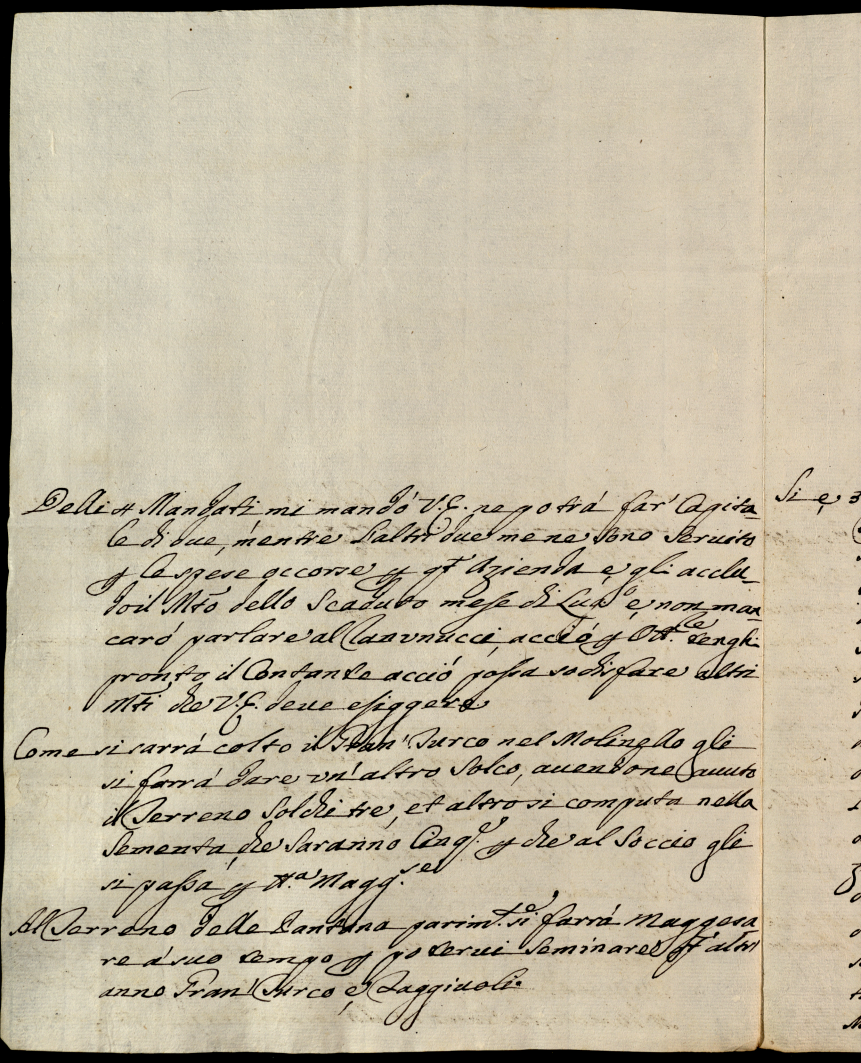 Delli 4 Mandati mi mandó V.E. ne potrá far' Capita-
le di due, mentre l'altri due me ne sono seruito
p le spese occorse p qt Azienda e gli acclu-
do il Mto dello Scaduto mese di Lugo e non man-
caró parlare al Canvnucci, acció p Ottre tenghi
pronto il Contante acció possa sodisfare altri
Mti che V.E. deue esiggere
Come si sarrá colto il Gran' Turco nel Molinello gli
si farrá dare vn' altro Solco, auendone auuto
il Terreno Solchi tre, et altro si computa nella
Sementa, che saranno Cinq.e p che al Soccio gli
si passá p 4.a Magg.se
Al Terreno delle Pantana parim.to si farrá Maggesa-
re á suo tempo p poterui seminare qt altr'
anno Gran' Turco e Faggiuoli.
Si e 3